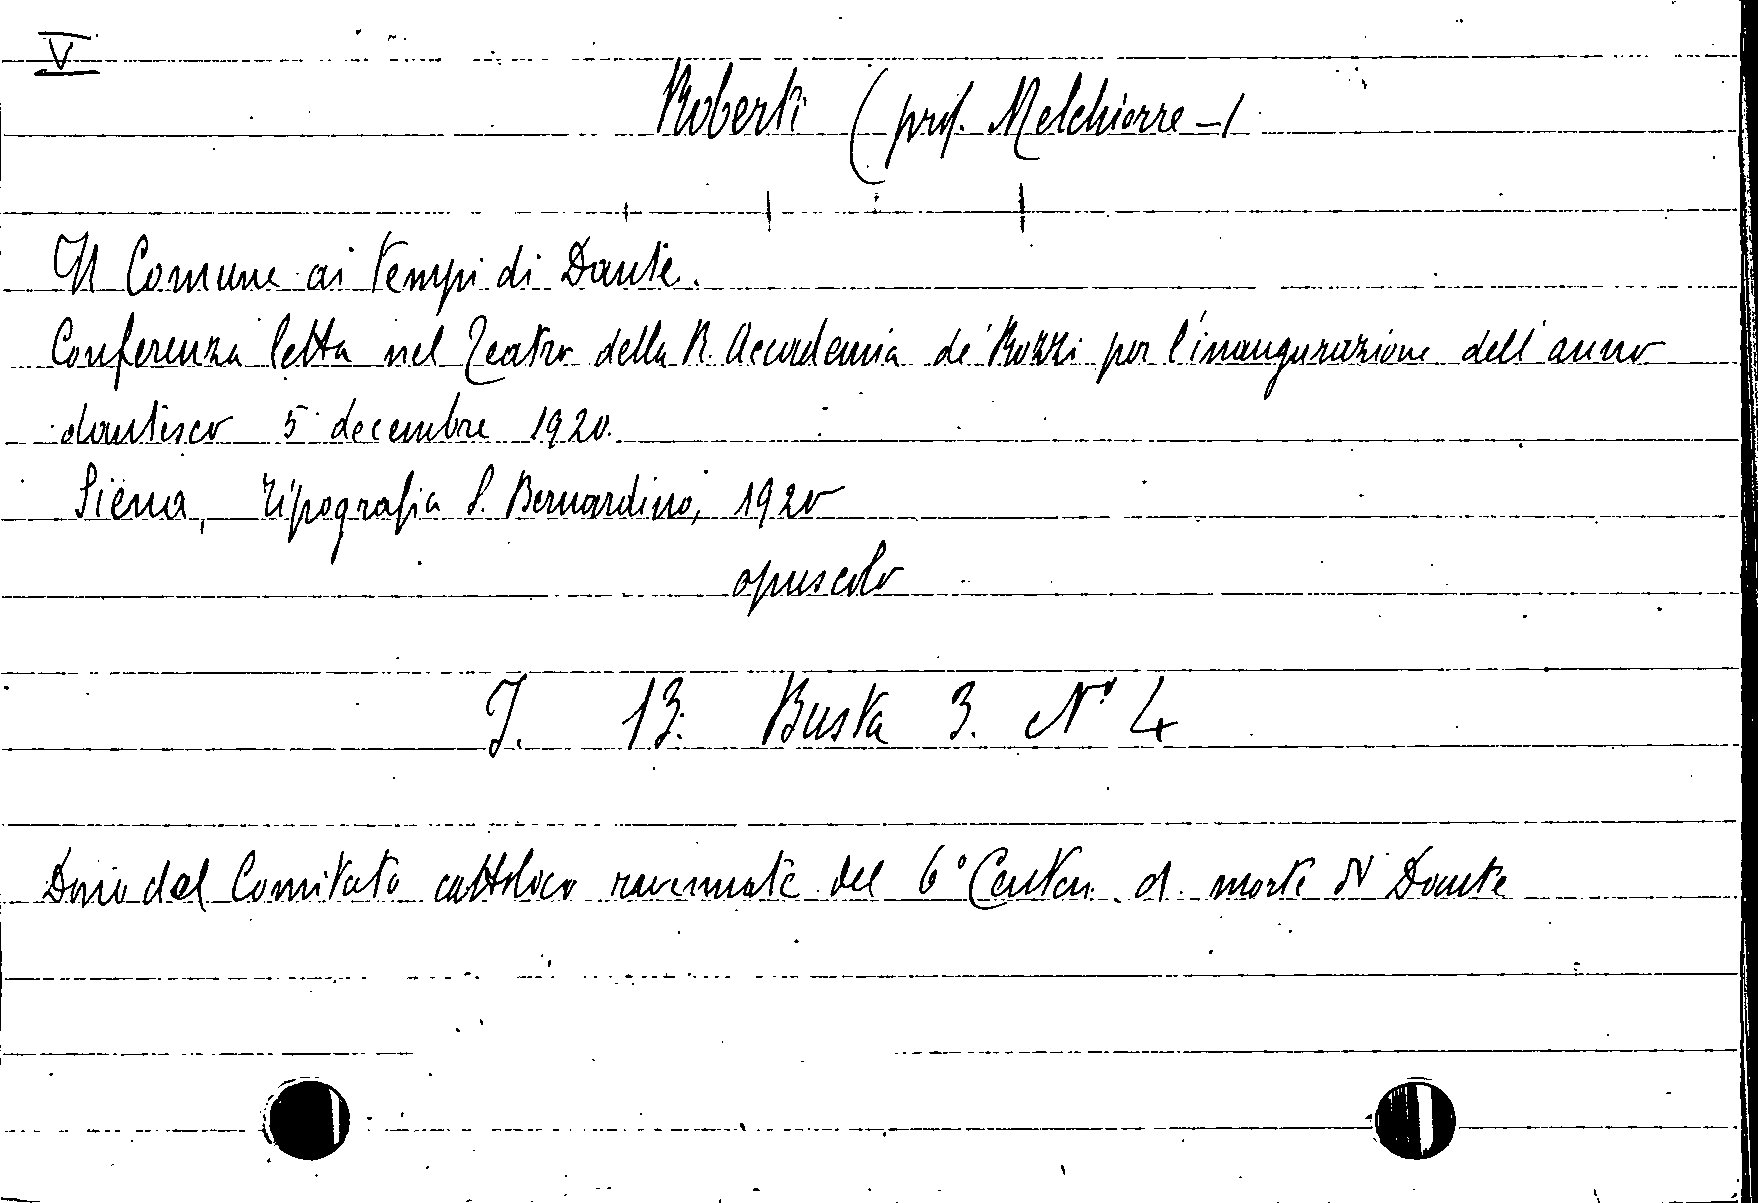 V
Roberti (prof. Melchiorre-)
Il Comune ai tempi di Dante.
Conferenza letta nel Teatro della R. Accademia de' Rozzi per l'inaugurazione dell'anno
dantesco 5 decembre 1920.
Siena, Tipografia S. Bernardino, 1920
opuscolo
I. 13. Busta 3. N° 4
Dono del Comitato cattolico ravennate del 6° Centen. d. morte di Dante